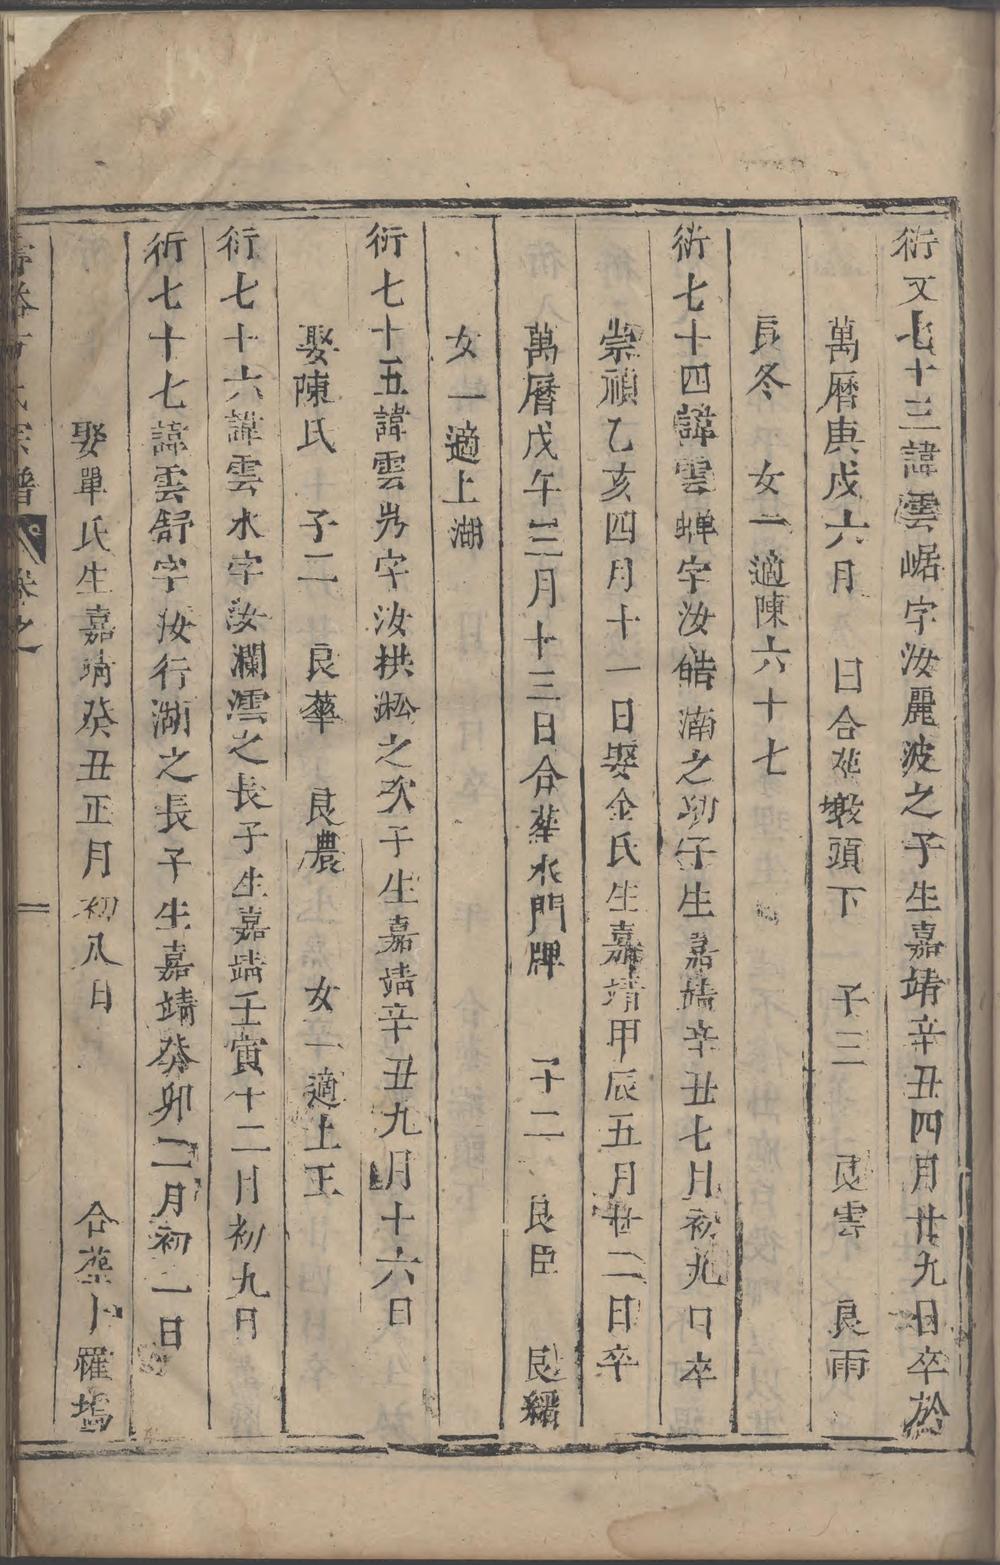 衍文七十三諱雲崌字汝麗波之子生嘉靖辛丑四月廿九日卒於
萬曆庚戍六月 日合塟塅頭下 子三 良雲 良雨
良冬 女一適陳六十七
衍七十四諱雲蟬字汝皓湳之幼子生嘉靖辛丑七月初九日卒
崇禎乙亥四月十一日娶金氏生嘉靖甲辰五月廿二日卒
萬曆戊午三月十三日合塟水門牌 子二 良臣 良縉
女一適上湖
衍七十五諱雲岃字汝栱淞之次子生嘉靖辛丑九月十六日
娶陳氏 子二 良華 良農 女一適上王
衍七十六諱雲水字汝瀾澐之長子生嘉靖壬寅十二月初九日
衍七十七諱雲舒字汝行湖之長子生嘉靖癸卯二月初一日
娶單氏生嘉靖癸丑正月初八日 合塟卜羅塢
宗譜 卷之